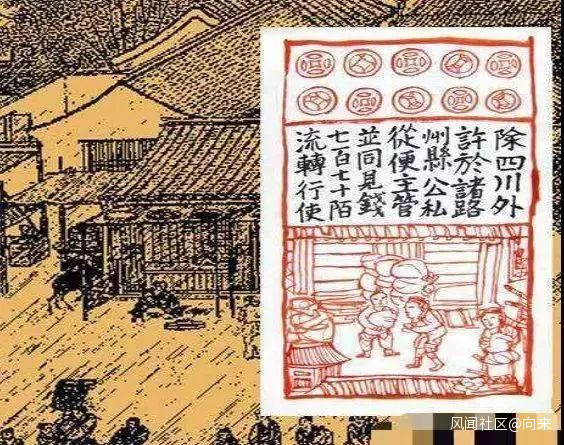 除四川外
許於諸路
州縣公私
從便主管
並同見錢
七百七十陌
流轉行使
风闻社区@向来